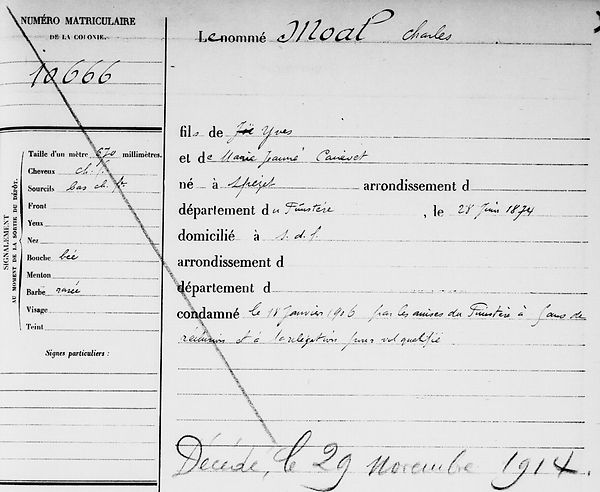 NUMÉRO MATRICULAIRE
DE LA COLONIE.
10666
Le nommé Moal Charles
fils de Yves
et de Marie Jeanne
né à Spézet arrondissement d
département du Finistère, le 28 Juin 1874
domicilié à s.d.f.
arrondissement d
département d
condamné le 18 Janvier 1906 par les assises du Finistère à 5 ans de
réclusion et à la relégation pour vol qualifié
Décédé, le 29 Novembre 1914.
SIGNALEMENT
AU MOMENT DE LA SORTIE DU DÉPÔT.
Taille d'un mètre 670 millimètres.
Cheveux ch. f.
Sourcils bas ch. f.
Front
Yeux
Nez
Bouche bée
Menton
Barbe rasée
Visage
Teint
Signes particuliers :